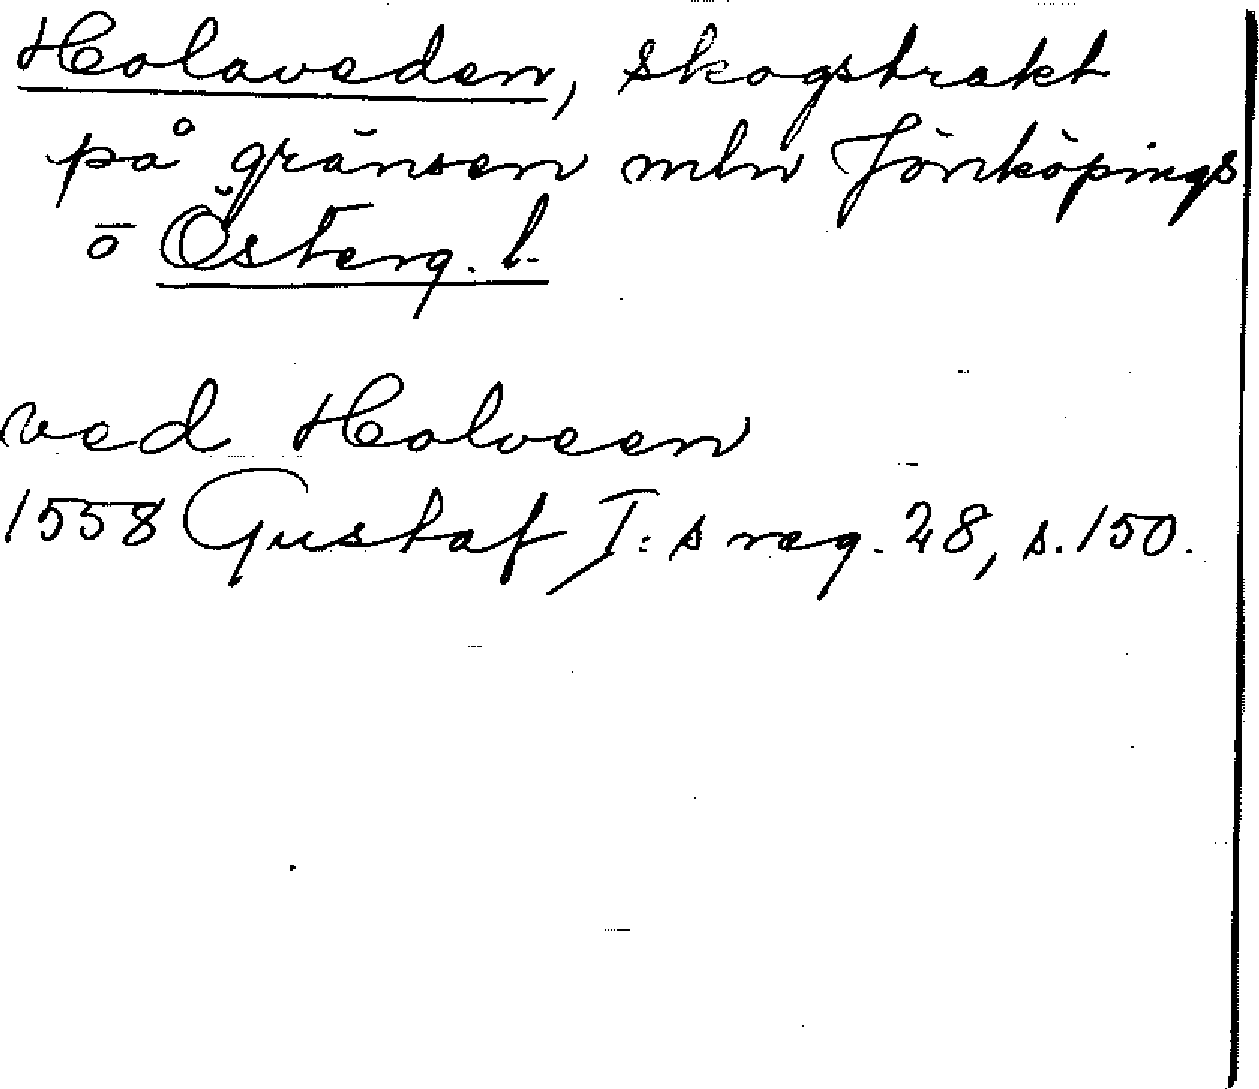 Holaveden, skogstrakt
på gränsen mln Jönköpings
o Österg. l.
ved Holveen
1558 Gustaf I:s reg. 28, s. 150.